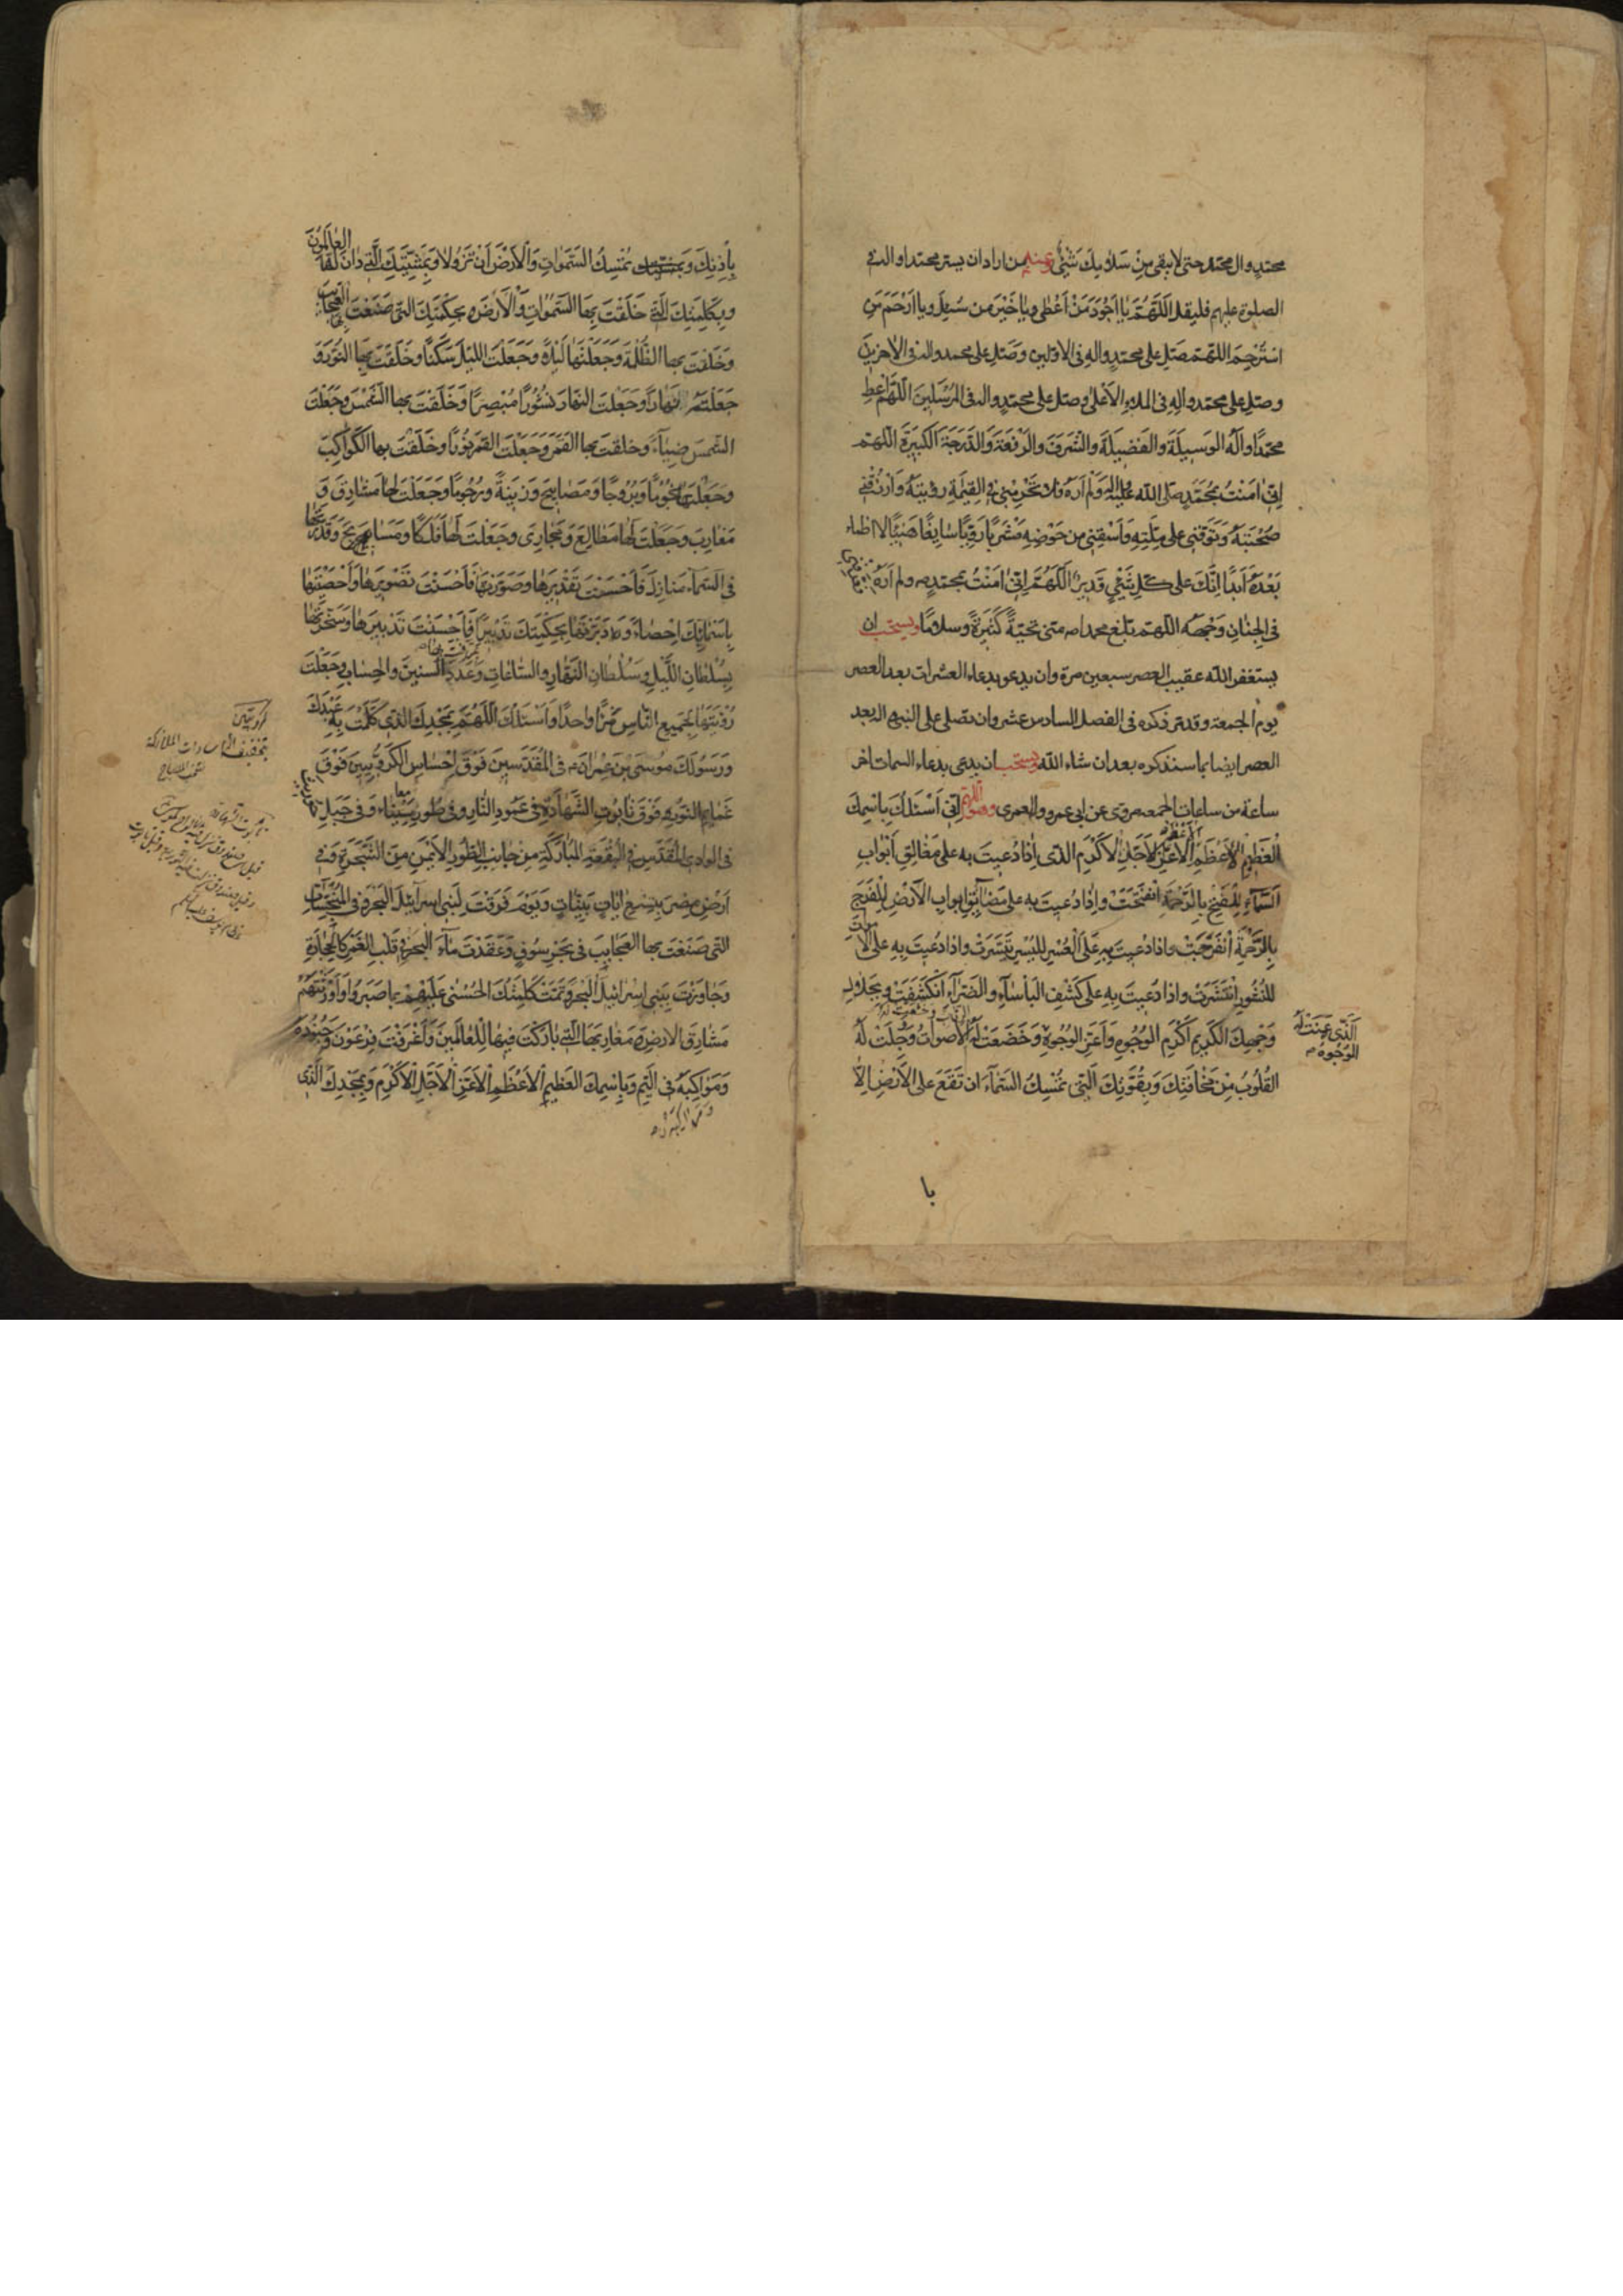 محمد وال محمد حتى لا يبقى من سلامك شئ وعنهم من اراد ان يسر محمدا واله في
الصلوة عليهم فليقل اللهم يا اجود من اعطى ويا خير من سئل ويا ارحم من
استرحم اللهم صل على محمد واله فى الاولين وصل على محمد واله فى الاخرين
وصل على محمد واله فى الملاء الاعلى وصل على محمد واله فى المرسلين اللهم اعط
محمدا واله الوسيلة والفضيلة والشرف والرفعة والدرجة الكبيرة اللهم
انى امنت بمحمد صلى الله عليه واله ولم اره فلا تحرمنى فى القيمة رؤيته وارزقنى
صحبته وتوفنى على ملته واسقنى من حوضه مشربا رويا سايغا هنيئا لا اظماء
بعده ابدا انك على كل شئ قدير اللهم انى امنت بمحمد ص ولم اره
فى الجنان وجهه اللهم بلغ محمدا ص منى تحية كثيرة وسلاما ويستحب ان
يستغفر الله عقيب العصر سبعين مرة وان يدعو بدعاء العشرات بعد العصر
يوم الجمعة وقد مر ذكره فى الفصل السادس عشر وان تصلى على النبى واله بعد
العصر ايضا بما سنذكره بعد ان شاء الله ويستحب ان يدعى بدعاء السمات اخر
ساعة من ساعات الجمعه مروى عن ابى عمرو العمرى وهو اللهم انى اسئلك باسمك
العظيم الاعظم الاعظم الاعز الاجل الاكرم الذى اذا دعيت به على مغالق ابواب
السماء للفتح بالرحمة انفتحت واذا دعيت به على مضائق ابواب الارض للفرج
بالرحمة انفرجت واذا دعيت به على العسر لليسر تيسرت واذا دعيت به على الاموات
للنشور انتشرت واذا دعيت به على كشف البأساء والضراء انكشفت وبجلال
وجهك الكريم اكرم الوجوه واعز الوجوه وخضعت له الرقاب وخشعت له الاصوات ووجلت له
الذى عنت له
الوجوه
القلوب من مخافتك وبقوتك التى تمسك السماء ان تقع على الارض الا
با
باذنك وتمسك السموات والارض ان تزولا وبمشيتك التى دان لها العالمون
وبكلمتك التى خلقت بها السموات والارض وبحكمتك التى صنعت بها العجايب
وخلقت بها الظلمة وجعلتها ليلا وجعلت الليل سكنا وخلقت بها النور و
جعلته نهارا وجعلت النهار نشورا مبصرا وخلقت بها الشمس وجعلت
الشمس ضياء وخلقت بها القمر وجعلت القمر نورا وخلقت بها الكواكب
وجعلتها نجوما وبروجا ومصابيح وزينة ورجوما وجعلت لها مشارق و
مغارب وجعلت لها مطالع ومجارى وجعلت لها فلكا ومسابح وقدرتها
فى السماء منازل فاحسنت تقديرها وصورتها فاحسنت تصويرها واحصيتها
باسمائك احصاء ودبرتها بحكمتك تدبيرا فاحسنت تدبيرها وسخرتها
بسلطان الليل وسلطان النهار والساعات وعدد السنين والحساب وجعلت
رؤيتها لجميع الناس مرأ واحدا واسئلك اللهم بمجدك الذى كلمت به عبدك
ورسولك موسى بن عمران ع فى المقدسين فوق احساس الكروبيين فوق
غمايم النور فوق تابوت الشهادة فى عمود النار وفى طور سيناء وفى جبل حوريث
فى الوادى المقدس فى البقعة المباركة من جانب الطور الايمن من الشجرة وفى
ارض مصر بتسع ايات بينات ويوم فرقت لبنى اسرآئيل البحر وفى المنبجسات
التى صنعت بها العجايب فى بحر سوف وعقدت ماء البحر فى قلب الغمر كالحجارة
وجاوزت ببنى اسرائيل البحر وتمت كلمتك الحسنى عليهم بما صبروا واورثتهم
مشارق الارض ومغاربها التى باركت فيها للعالمين واغرقت فرعون وجنوده
ومواكبه فى اليم وباسمك العظيم الاعظم الاعز الاجل الاكرم وبمجدك الذى